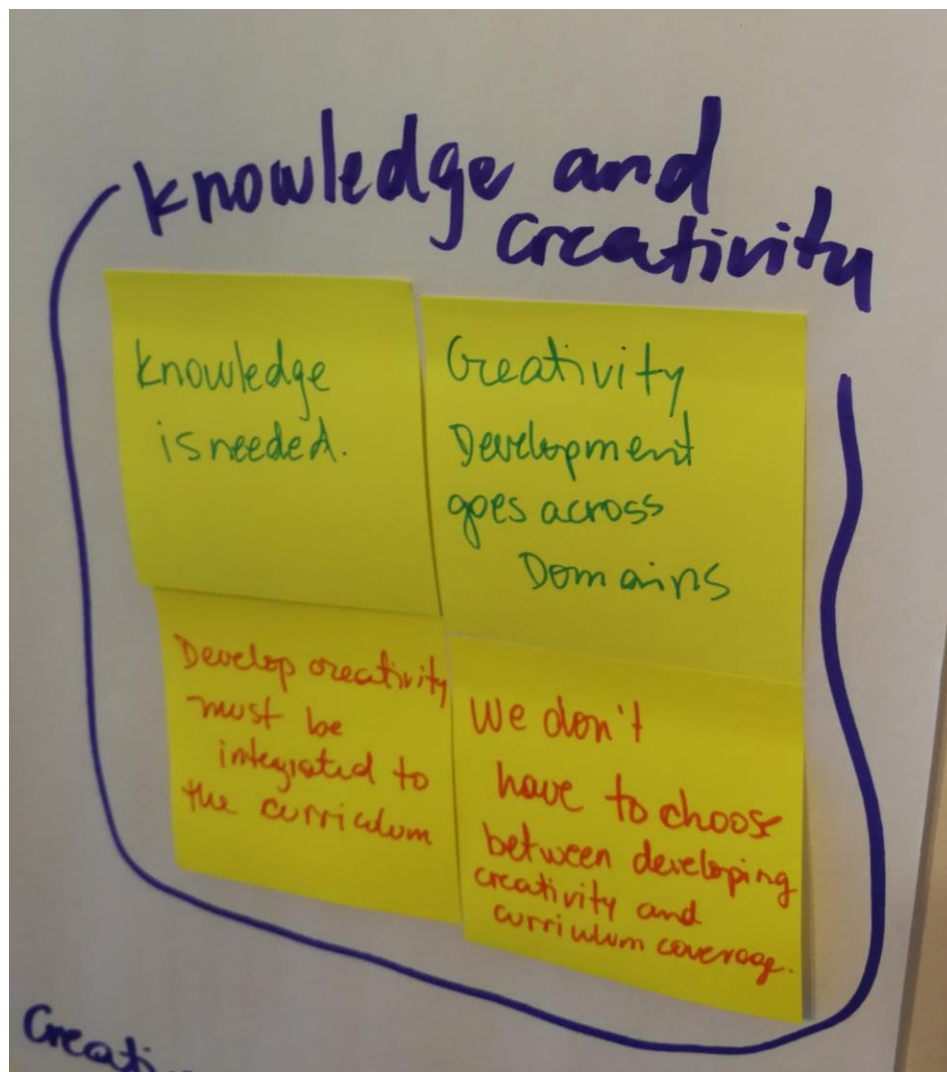 knowledge and
creativity
knowledge
is needed.
Creativity
Development
goes across
Domains
Develop creativity
must be
integrated to
the curriculum
We don't
have to choose
between developing
creativity and
curriculum coverage.